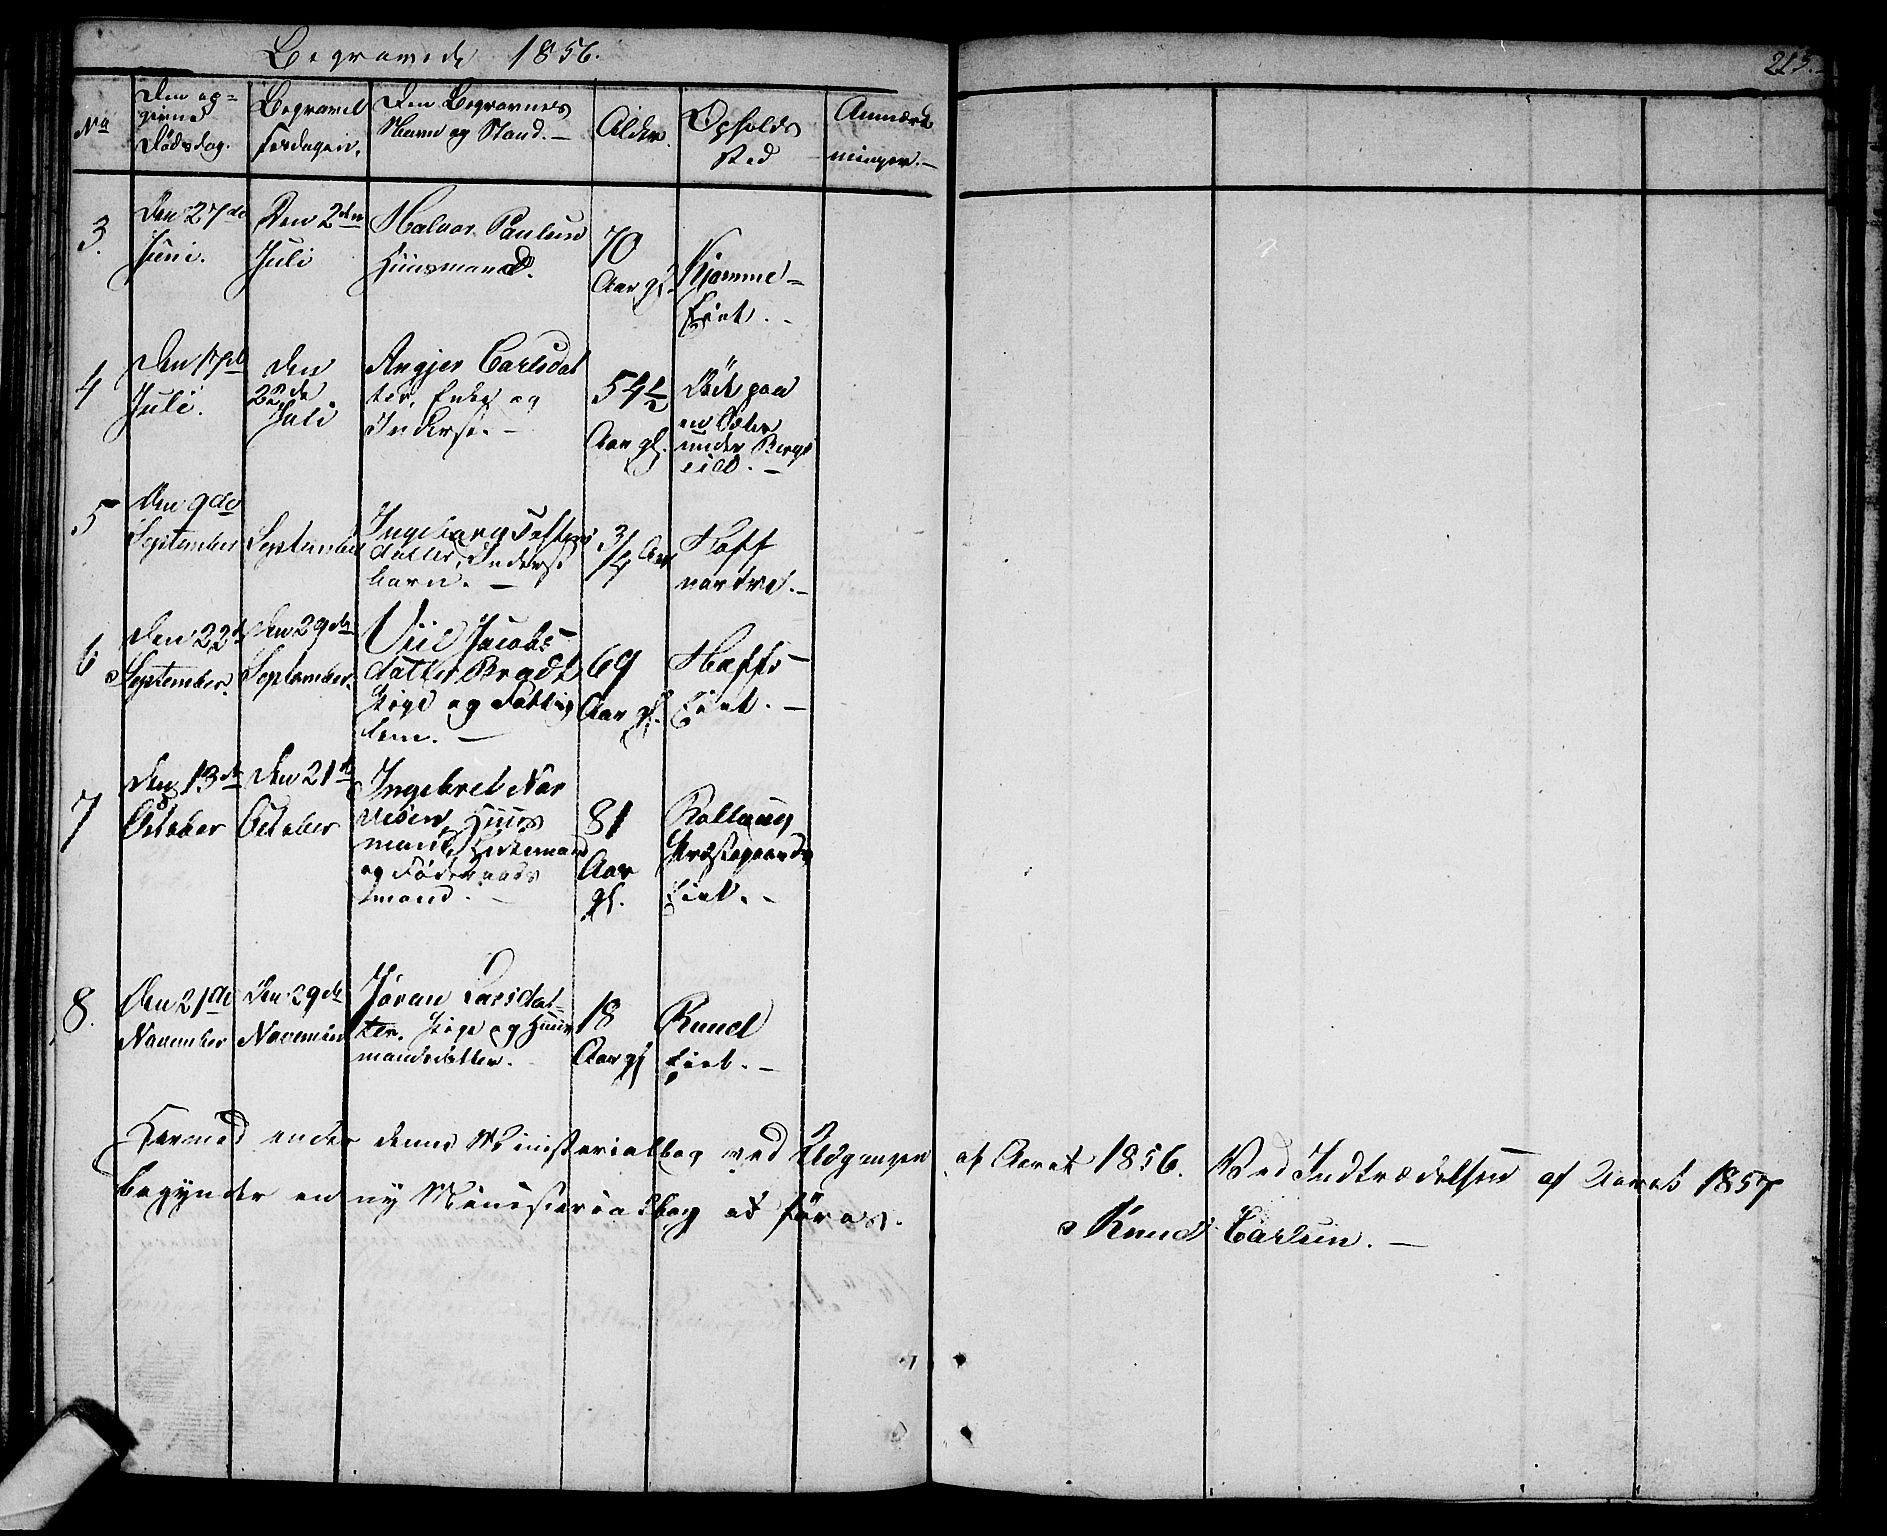 Begravede 1856.
213.
No
Den op-
givne
Dødsdag.
Begravel
sesdagen.
Den Begravnes
Navn og Stand. —
Alder.
Opholds
sted
Anmærk
ninger. —
3.
Den 27de
Juni.
Den 2den
Juli
Halvor Paulsen
Huusmand.
70
Aar gl.
Kjomme-
Eiet. -
4
Den 17de
Juli.
den
22de
Juli
Angjer Carlsdat
ter, Enke og
Inderst. —
54 1/2
Aar gl.
Död paa
en Sæter
under Bergs
eiet. —
5
Den 9de
September
September
Ingeborg
datter, Inderst
barn. —
3/4 Aar
Hoff
nordre. —
6
Den 22de
September.
den 29de
September.
Siil Jacobs-
datter Bradt
Pige og Fattig
lem. —
69
Aar gl.
Hoffs-
Eiet. —
7
Den 13de
October
Den 21de
October
Ingebret Nar
vesen, Huus
mand,
og Föderaads
mand. -
81
Aar
gl.
Rollaug
Præstegaards
Eiet. -
8.
Den 21de
November
Den 29de
November
Jöran Larsdat-
ter. Pige og Huus
mandsdatter.
18
Aar gl
Ruud
Eiet. -
Hermed ender denne Ministerialbog ved Udgangen af Aaret 1856. Ved Indtrædelsen af Aaret 1857
begynder en ny Ministerialbog at föres.
Knud Carlsen. —